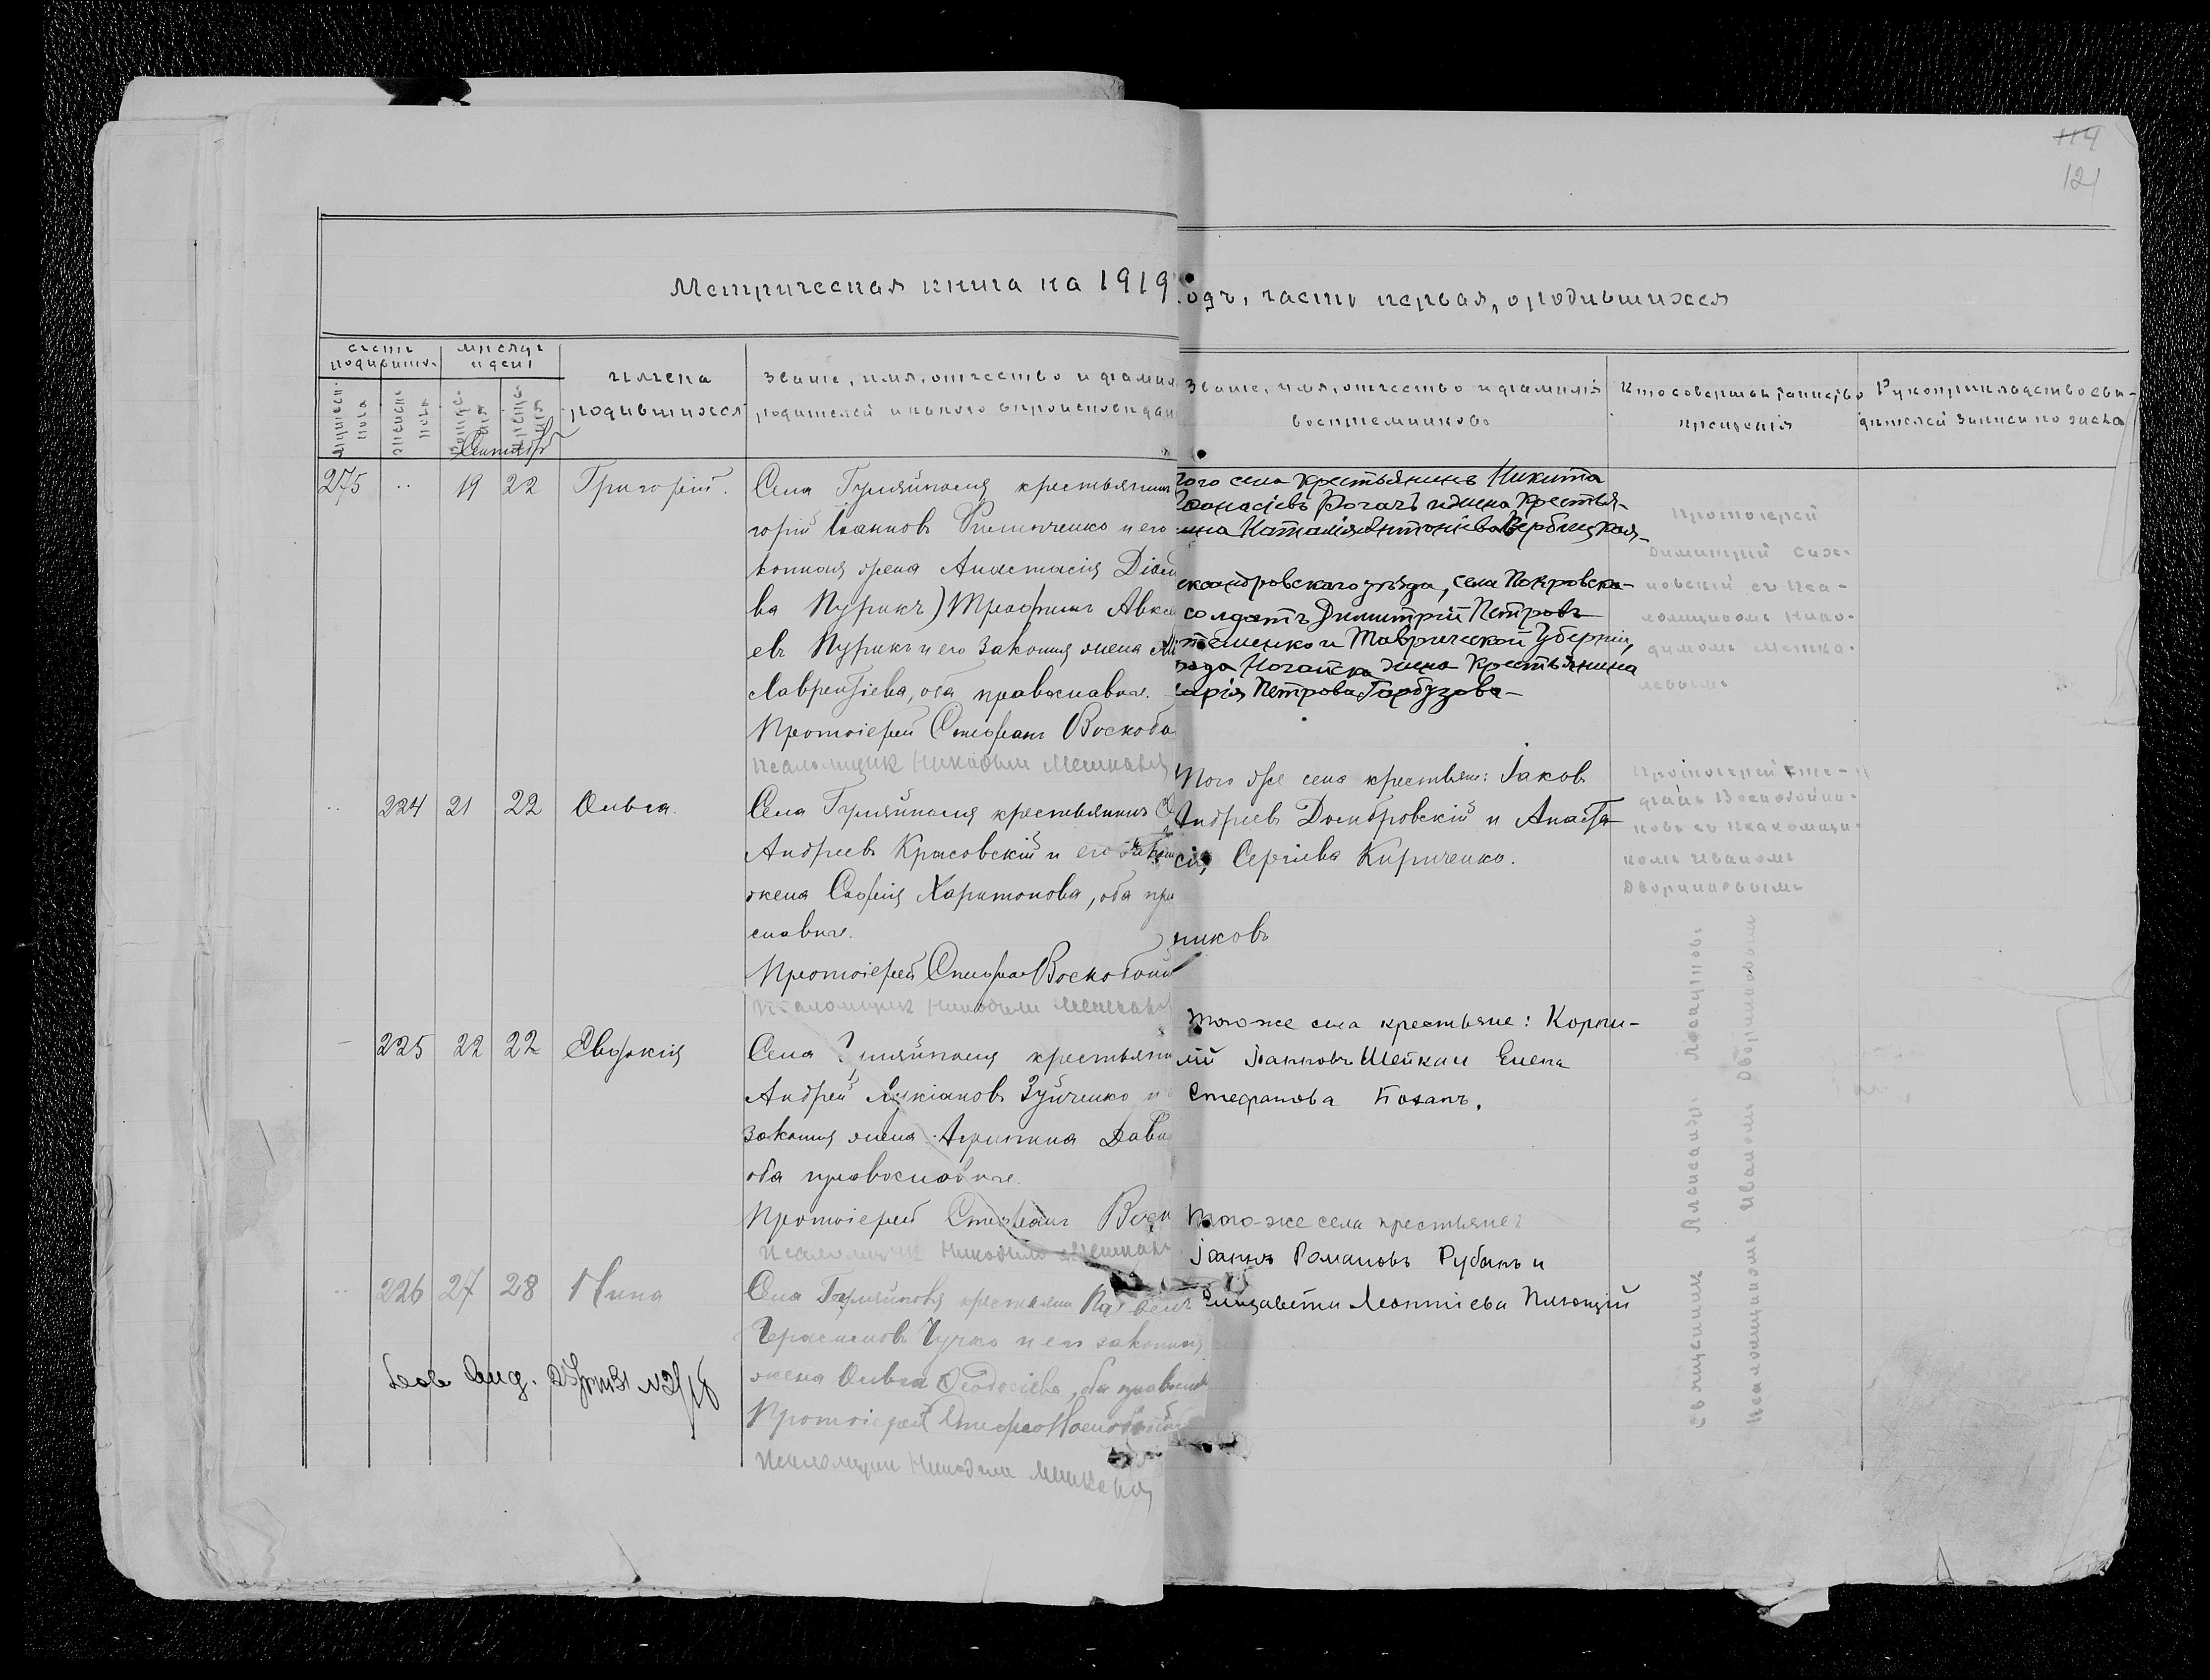 114
121
Метрическая книга на 1919
одъ, часть первая, о родившихся
счетъ
родивших.
мѣсяцъ
и день
имена
родившихся
Званіе, имя, отчество и фамил
родителей и какого вѣроисповѣдан
Званіе, имя, отчество и фамилія
воспріемниковъ
Кто совершалъ таинство
крещенія
Рукоприкладство сви-
дѣтелей записи по
мужеск.
пола
женск.
пола
рожде-
нія
креще-
нія
Сентябр
275 .. 19 22 Григорій.
Села Гуляйполя крестьянин
горій Іоаннов и его
конная жена Анастасія
ва Пурикъ) Трофимъ Авкс
евъ Пурикъ и его законная жена
Лаврентіева, оба православные.
Протоіерей Стефанъ Воскобо
псаломщик Никодим Мешкавъ
того села крестьянинъ Никита
Рогачъ и жена крестья-
нина Наталія Антоніева Вербицкая
ександровскаго уѣзда, села Покровска-
солдатъ Димитрій Петровъ
и Таврической Губерніи,
рода Ногайска жена крестьянина
арія Петрова Гарбузова
Протоіерей
Димитрій Сахо-
новскій съ пса-
ломщикомъ Нико-
димомъ Мешка-
левымъ
.. 224 21 22 Ольга.
Села Гуляйполя крестьянинъ
Андреевъ Красовскій и его закон
жена Софія Харитонова, оба пра
славные.
Протоіерей Стефан Воскобойн
псаломщик Никодим Мешкавъ
Того же села крестьяне: Іаковъ
Андреевъ Домбровскій и Анаста
сія Сергіева Кириченко.
никовъ
Протоіерей Сте-
фанъ Воскобойни-
ковъ съ псаломщи-
комъ Иваномъ
Дворниковымъ
- 225 22 22 Евдокія
Села Гуляйполя крестьяни
Андрей Лукіановъ Зуйченко и
законная жена Агрипина Дави
оба православные.
Протоіерей Стефанъ Воск
псаломщик Никодимъ Мешкавъ
Того-же села крестьяне: Корни-
лій Іоанновъ Шейка и Елена
Стефанова Бохан.
Священникъ Александръ
Псаломщикомъ Иваномъ Дворниковым
.. 226 27 28 Нина
Села Гуляйполя крестьянин Павелъ
Герасимовъ Чучко и его законная
жена Ольга Феодосіева, оба православ
Протоіерей Стефан Воскобойн
псаломщик Никодим Мешкавъ
Того-же села крестьяне:
Іоаннъ Романовъ Рубанъ и
Елизавета Леонтіева